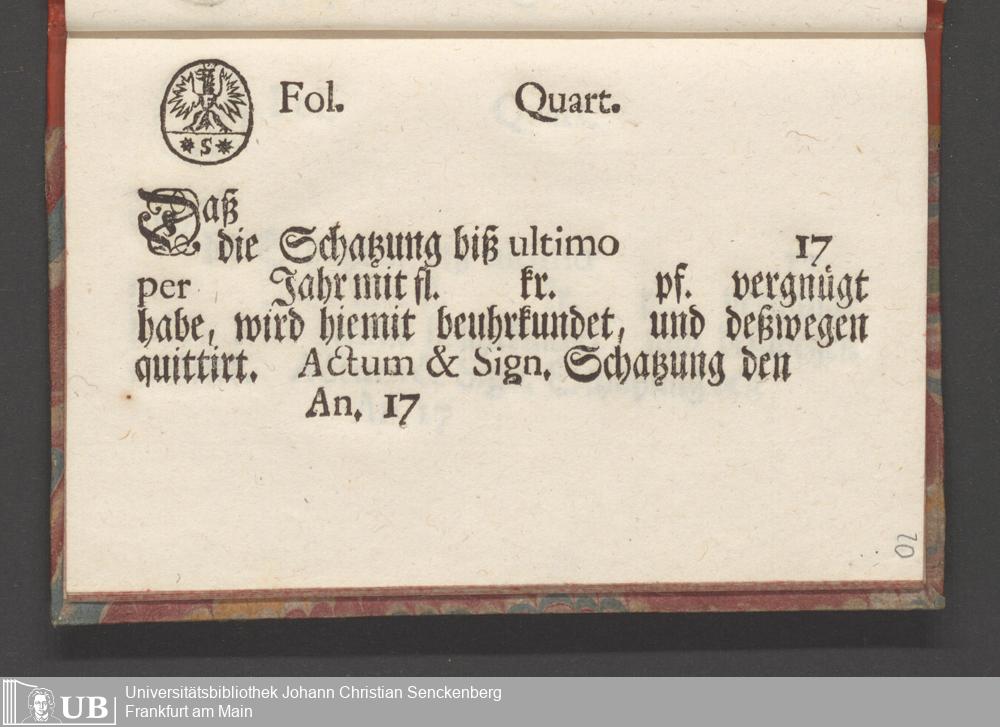 S
Fol. Quart.
Daß
die Schatzung biß ultimo 17
per Jahr mit fl. kr. pf. vergnügt
habe, wird hiemit beuhrkundet, und deßwegen
quittirt. Actum & Sign. Schatzung den
An. 17
20
UB Universitätsbibliothek Johann Christian Senckenberg
Frankfurt am Main